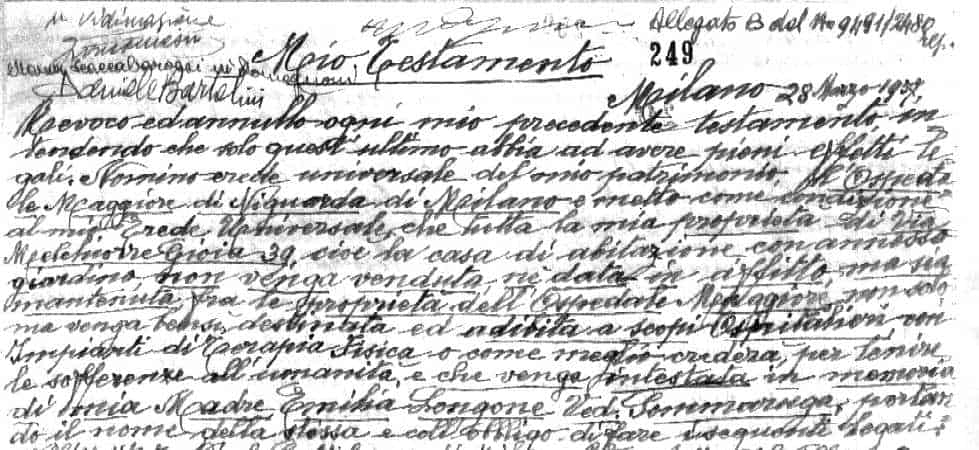 di Vidimazione
Allegato B del No 9491/2480
rep.
Mio Testamento
249
Daniele Bartolini
Milano 28 Marzo 1937
Revoco ed annullo ogni mio precedente testamento, in
tendendo che solo quest'ultimo abbia ad avere pieni effetti le
gali. Nomino erede universale del mio patrimonio, l'Ospeda
le Maggiore di Niguarda di Milano e metto come condizione
al mio Erede Universale, che tutta la mia proprietà di Via
Melchiorre Gioia 39, cioè la casa di abitazione con annesso
giardino, non venga venduta, nè data in affitto, ma sia
mantenuta fra le proprietà dell'Ospedale Maggiore, non solo
ma venga bensì destinata ed adibita a scopi Ospitalieri, con
Impianti di Terapia Fisica o come meglio crederà, per lenire
le sofferenze all'umanità, e che venga intestata in memoria
di mia Madre Emilia Longone Ved. Sommaruga, portan
do il nome della stessa e coll'obbligo di fare i seguenti Legati: